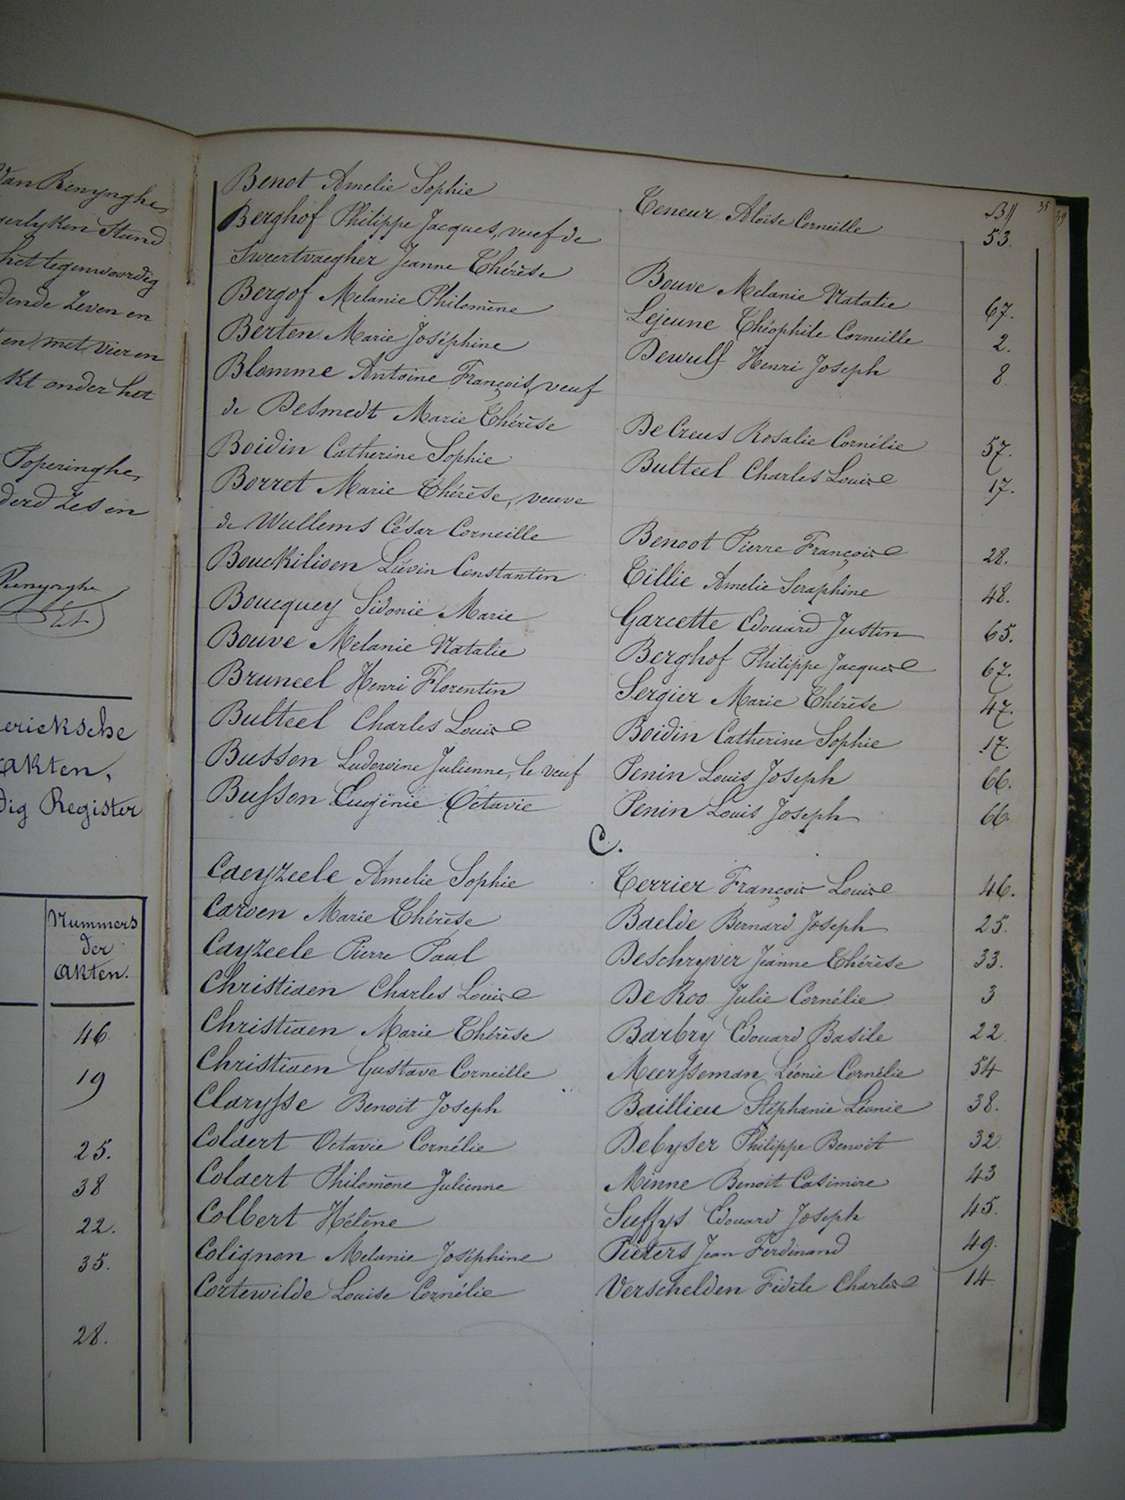 Van Renynghe,
gerlyken Stand
het tegenwoordig
dende Zeven en
en met vier en
kt onder het
Poperinghe,
derd Zes en
Renynghe
ericksche
akten,
dig Register
Nummers
der
akten.
46
19
25.
38
22.
35.
28.
35 39
Benot Amelie Sophie Teneur Aloïse Corneille 53.
Berghof Philippe Jacques, veuf de
Sweertvaegher Jeanne Thérèse Bouve Melanie Natalie 67.
Bergof Melanie Philomène Lejeune Théophile Corneille 2.
Berten Marie Joséphine Dewulf Henri Joseph 8
Blomme Antoine François, veuf
de Desmedt Marie Thérèse De Creus Rosalie Cornélie 57.
Boidin Catherine Sophie Bulteel Charles Louis 17.
Borret Marie Thérèse, veuve
de Wullems César Corneille Benoot Pierre François 28.
Bouckilioen Liévin Constantin Tillie Amelie Seraphine 48.
Boucquey Sidonie Marie Garcette Edouard Justin 65.
Bouve Melanie Natalie Berghof Philippe Jacques 67.
Bruneel Henri Florentin Sergier Marie Thérèse 47.
Bulteel Charles Louis Boidin Catherine Sophie 17.
Busson Ludovine Julienne, le veuf Penin Louis Joseph 66.
Busson Eugénie Octavie Penin Louis Joseph 66.
C.
Caeyzeele Amelie Sophie Terrier François Louis 46.
Caroen Marie Thérèse Baelde Bernard Joseph 25.
Cayzeele Pierre Paul Deschryver Jeanne Thérèse 33.
Christiaen Charles Louis De Roo Julie Cornélie 3
Christiaen Marie Thérèse Barbry Edouard Basile 22.
Christiaen Gustave Corneille Meersseman Léonie Cornélie 54
Clarysse Benoit Joseph Baillieu Stéphanie Léonie 38.
Colaert Octavie Cornélie Debyser Philippe Benoît 32
Colaert Philomène Julienne Minne Benoît Casimire 43
Colbert Hélène Suffys Edouard Joseph 45.
Colignon Melanie Joséphine Pieters Jean Ferdinand 49.
Cortewilde Louise Cornélie Verschelden Fidèle Charles 14